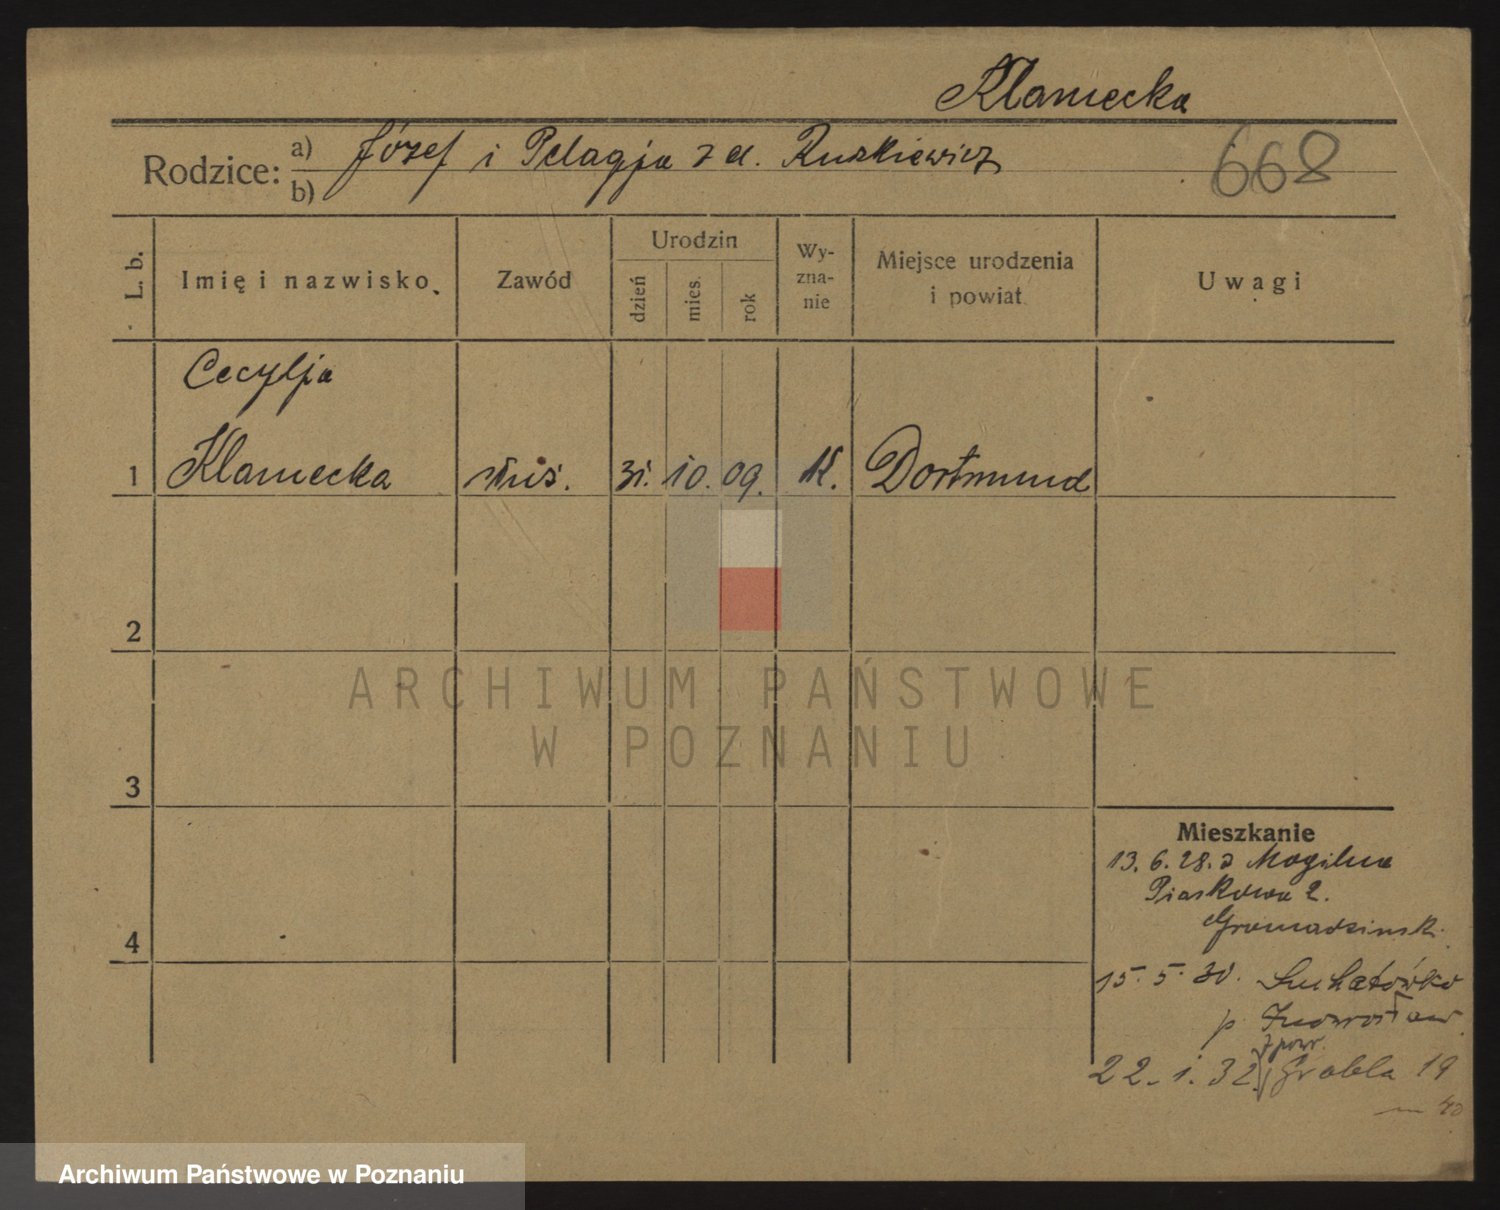 Klaniecka
Rodzice: a) b) Józef i Pelagja z d. Ruszkiewicz
668
L. b.
Imię i nazwisko
Zawód
Urodzin
dzień
mies.
rok
Wy-
zna-
nie
Miejsce urodzenia
i powiat
Uwagi
Cecylja
1 Klaniecka służ. 31. 10. 09. K. Dortmund
2
ARCHIWUM PAŃSTWOWE
W POZNANIU
3
Mieszkanie
13. 6. 28. z Mogilna
Piaskowa 2.
4
15. 5. 30. Suchatówko
p. Inowrocław
z powr.
22. 1. 32. Grobla 19
m 40
Archiwum Państwowe w Poznaniu